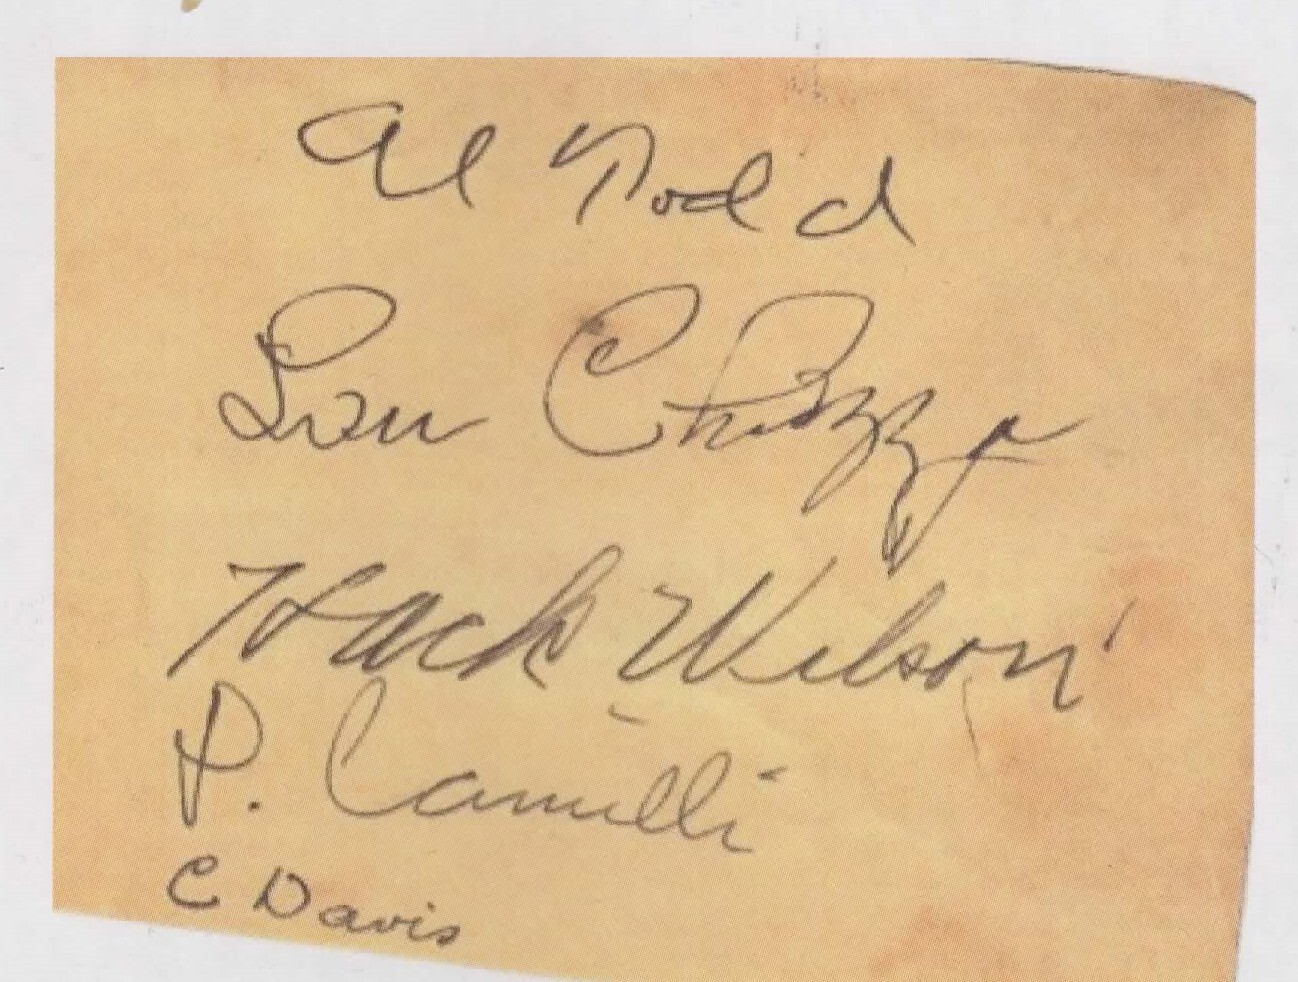 Al Todd
Lou Chiozza
Hack Wilson
D. Camilli
C Davis